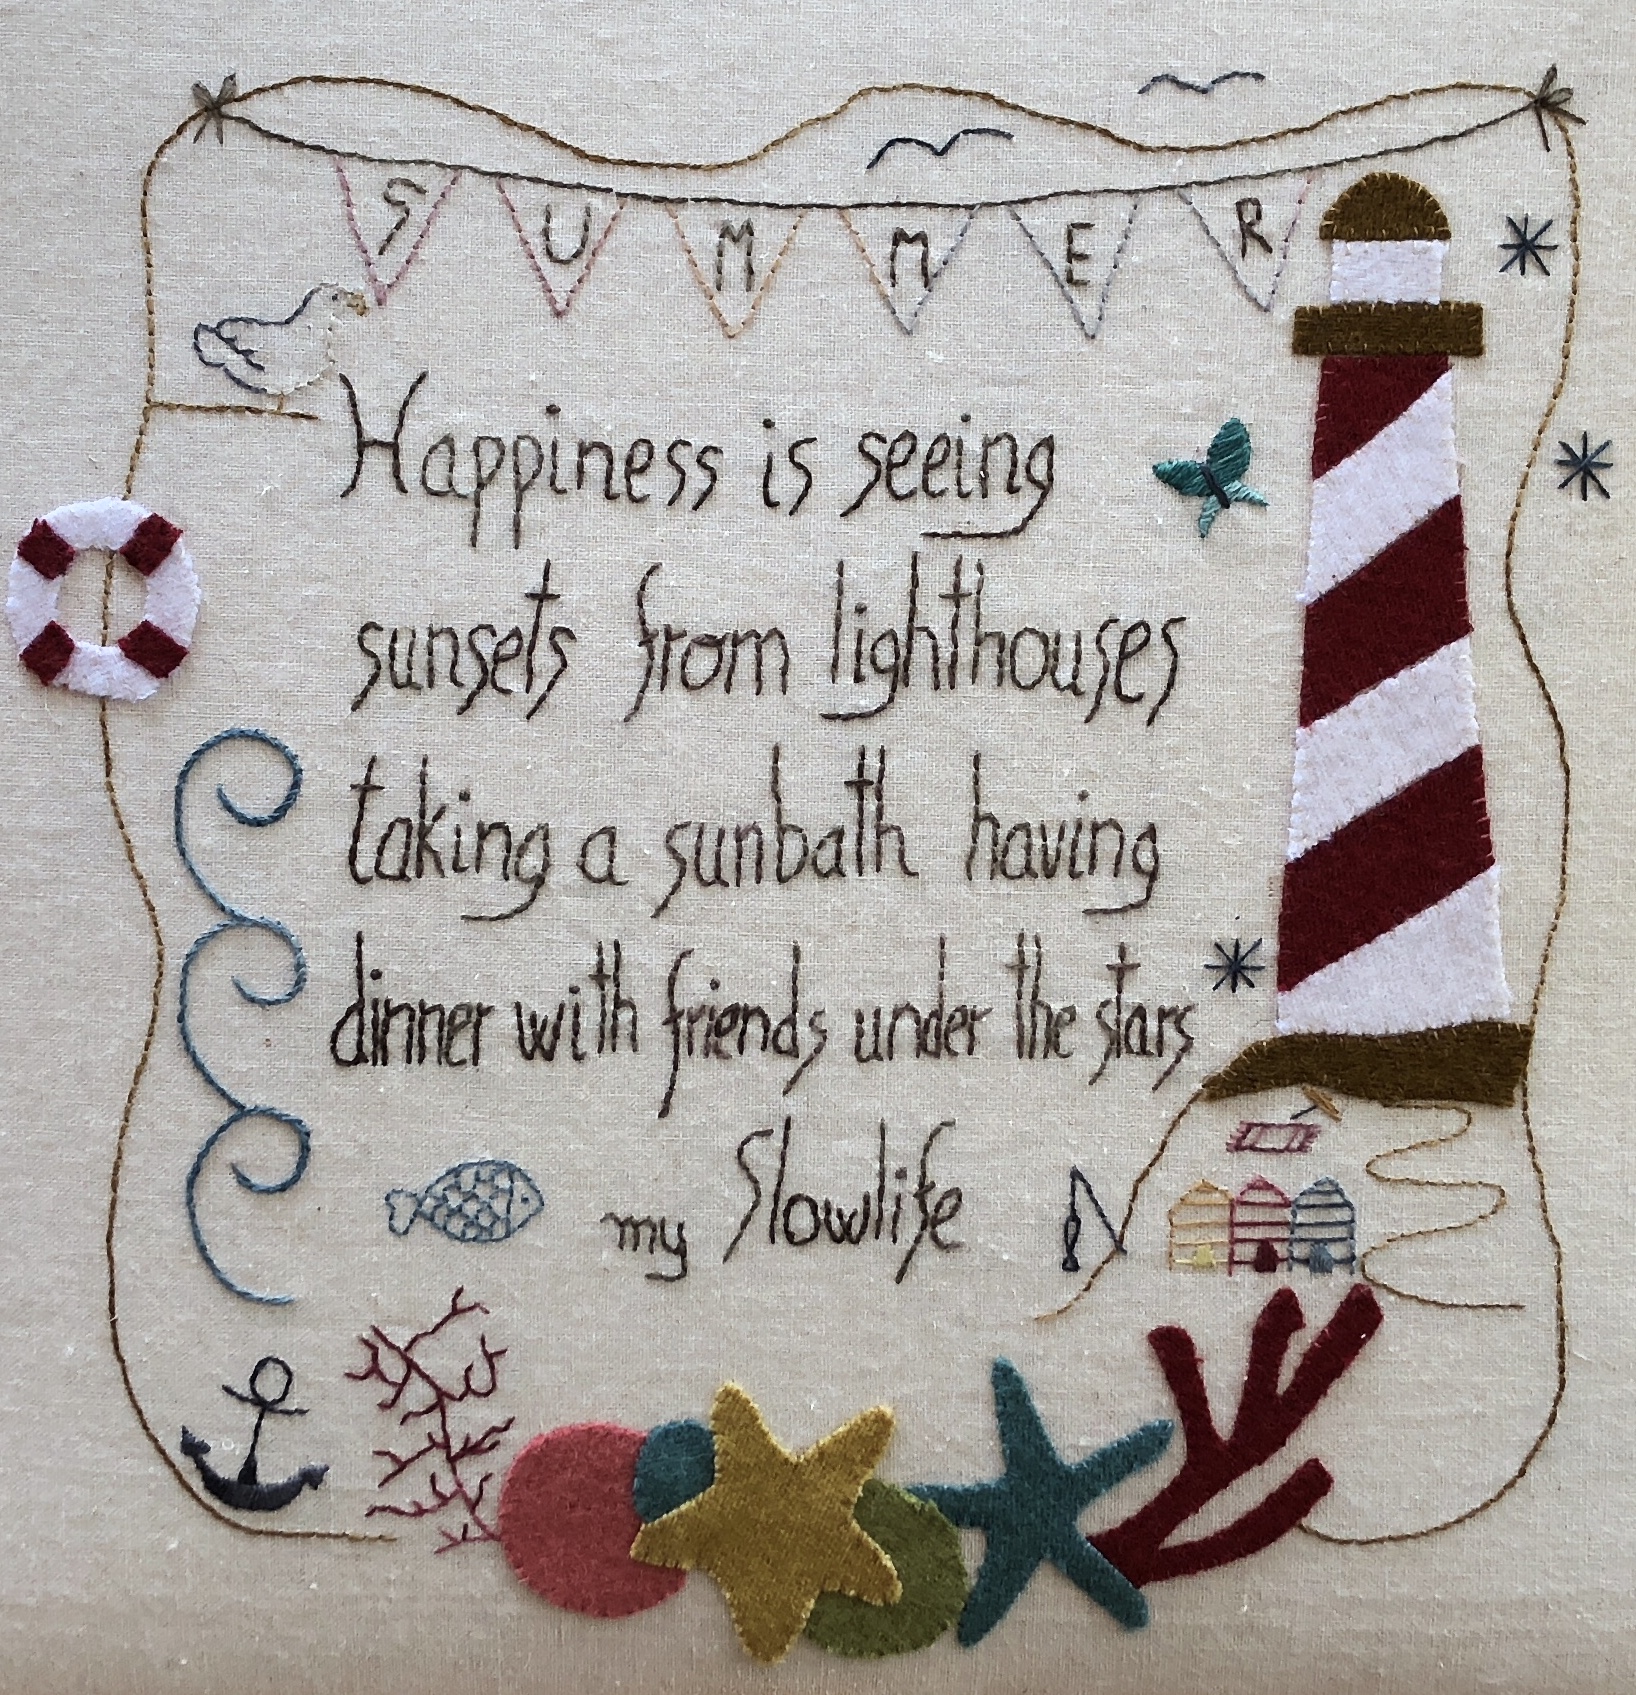 SUMMER
Happiness is seeing
sunsets from lighthouses
taking a sunbath having
dinner with friends under the stars
my Slowlife